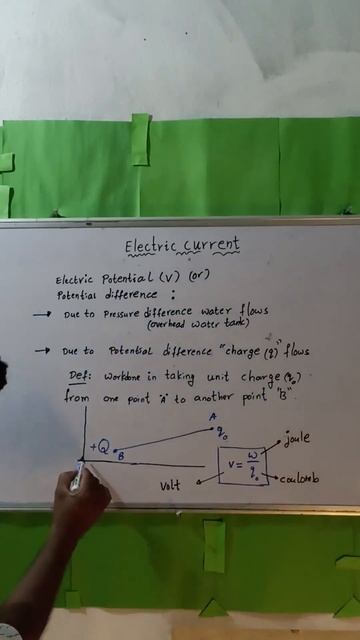 Electric current
Electric Potential (V) (or)
Potential difference :
→ Due to Pressure difference water flows
(overhead water tank)
→ Due to Potential difference "charge (q)" flows
Def: Workdone in taking unit charge (q₀)
from one point "A" to another point "B".
A
q₀
+Q
B
V = W/q₀
joule
coulomb
Volt